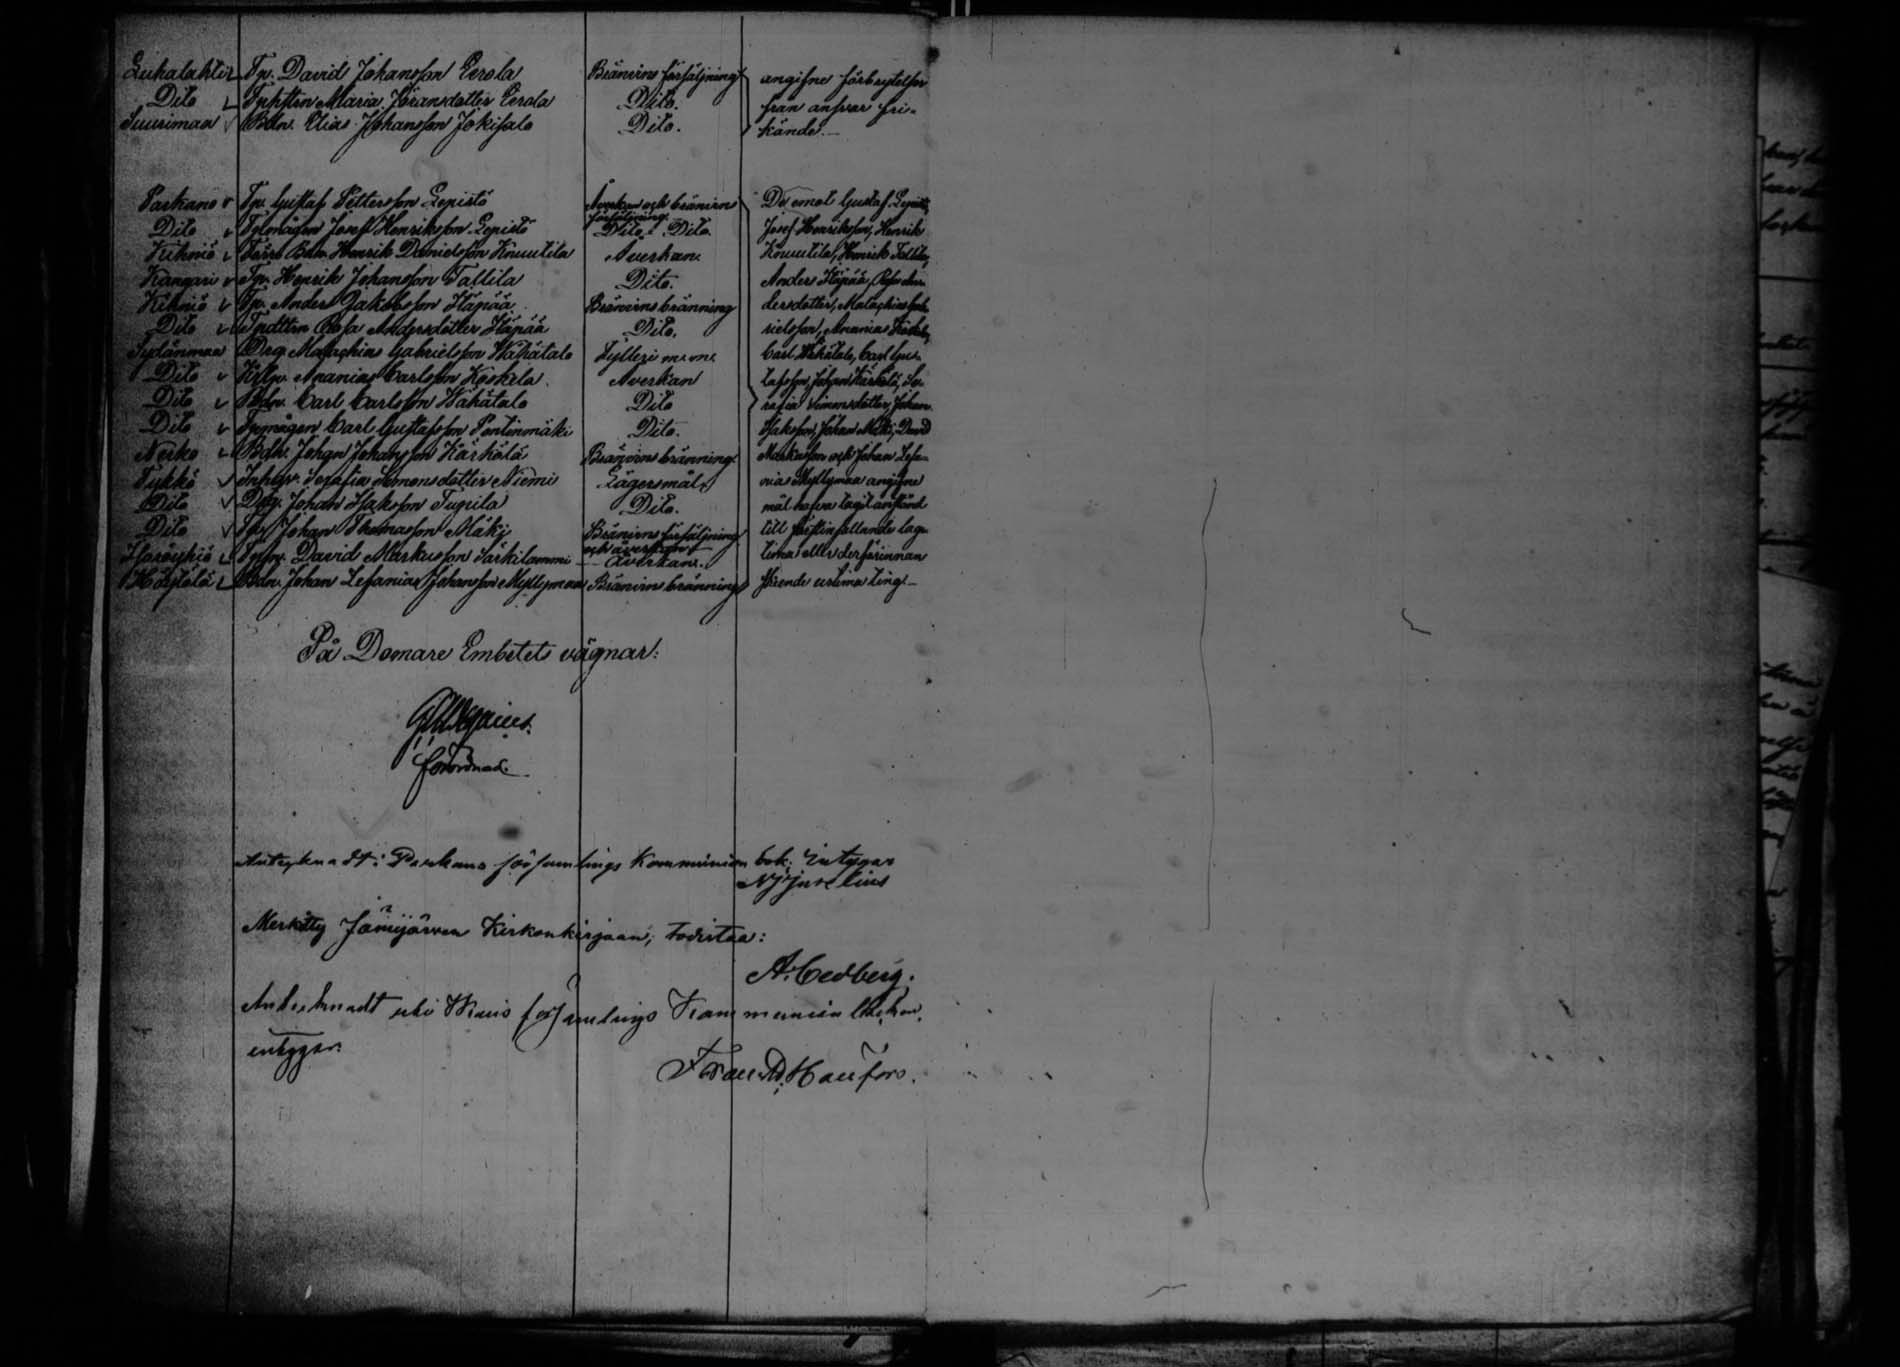 Tp. David Johansson Eerola Bränvins försäljning angifne förbrytelser
Dito Maria Jöransdotter Eerola Dito. från ansvar fri-
Suurimaa Bdn. Elias Johansson Jokisalo Dito. kände.
Parkano Tp. Gustaf Pettersson Lepistö Åverkan och bränvins försäljning De emot Gustaf Lepistö,
Dito Josef Henriksson Lepistö Dito. Dito. Josef Henriksson, Henrik
Kihniö Bdn. Henrik Danielsson Knuutila Åverkan. Knuutila, Henrik Tallila,
Tp. Henrik Johansson Tallila Dito. Anders Häpää, Rosa An-
Kihniö Tp. Anders Jakobsson Häpää Bränvins bränning dersdotter, Malachias Gab-
Dito Rosa Andersdotter Häpää Dito. rielsson, Ananias Koskela,
Sydänmaa Drg. Malachias Gabrielsson Wähätalo Fylleri m.m. Carl Wähätalo, Carl Gus-
Dito Ananias Carlsson Koskela. Åverkan tafsson, Johan Kärkölä, Se-
Dito Bdn. Carl Carlsson Wähätalo Dito rafia Simonsdotter, Johan
Dito Carl Gustafsson Pentinmäki Dito. Isaksson, Johan Mäki, David
Nerko Bdn. Johan Johansson Kärkölä Bränvins bränning. Markusson och Johan Lefa-
Serafia Simonsdotter Niemi Lägersmål. nias Myllymaa angifne
Dito Drg. Johan Isaksson Tuurila Dito. mål hafva tagit anstånd
Dito Johan Thomasson Mäki Bränvins försäljning och åverkan till näst infallande lag-
David Markusson Särkilammi Åverkan. tima eller derförinnan
Bdn. Johan Lefanias Johansson Myllymaa Bränvins bränning skeende urtima ting.
På Domare Embetets vägnar:
förordnad.
Antecknadt i Parkano församlings Kommunion bok; intygar
Merkitty Jämijärven Kirkonkirjaan; todistaa:
A. Cedberg.
Antecknadt uti församlings Kommunion
intygar:
Frans Ad. Hanfors.